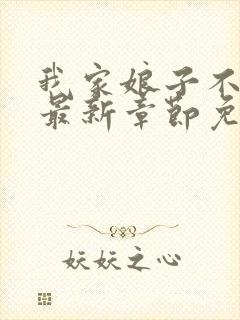 我家娘子不
最新章节免
妖妖之心